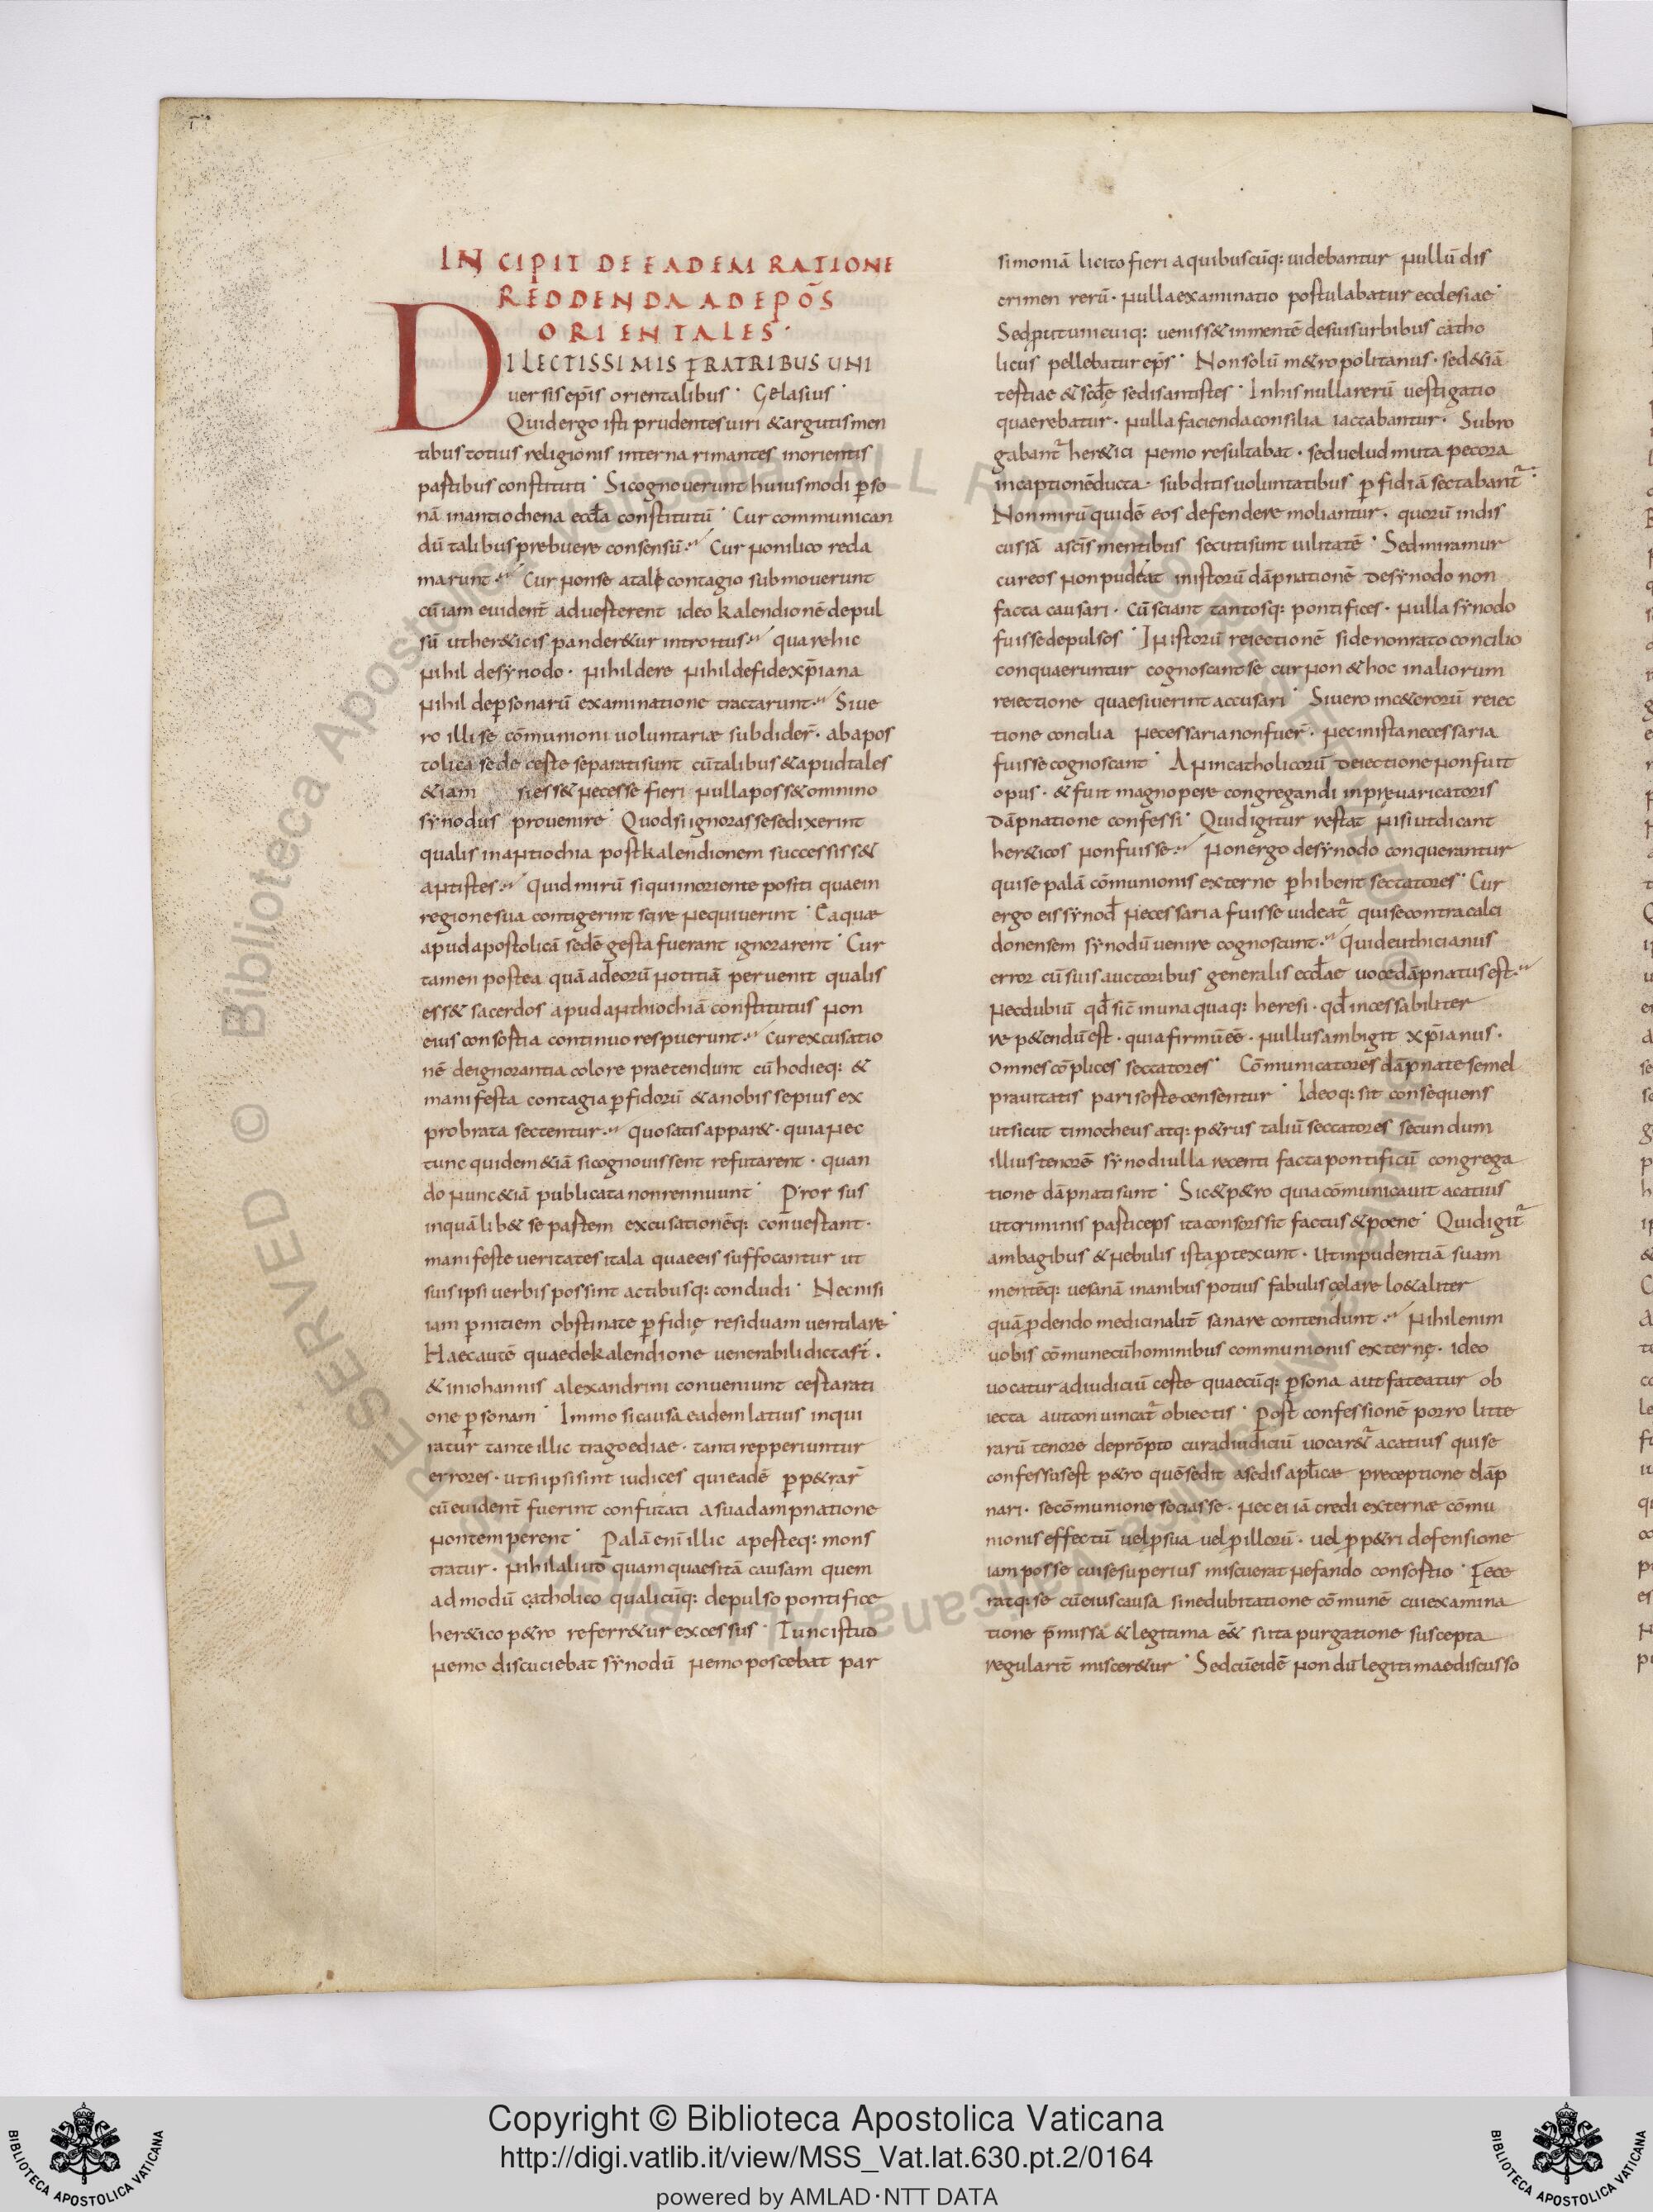 INCIPIT DE EADEM RATIONE
REDDENDA AD EPŌS
ORIENTALES·
DILECTISSIMIS FRATRIBUS UNI
uersis ep̄is orientalibus · Gelasius ·
Quid ergo isti prudentes uiri & argutis men
tibus totius religionis interna rimantes in orientis
partibus constituti · Si cognouerunt huiusmodi p̱so
nā in antiochena ecclā constitutū · Cur communican
dū talibus prebuere consensū · Cur non ilico reda
marunt · Cur non se a tali contagio submouerunt
cū iam euident̄ aduerterent ideo kalendionē depul
sū ut her&icis pander&ur introitus · qua re hic
nihil de synodo · nihil de re nihil de fide xp̄iana
nihil de p̱sonarū examinatione tractarunt · Si ue
ro illi se cōmunioni uoluntariæ subdider̄ · ab apos
tolica sede certe separati sunt cū talibus & apud tales
&iam si ess& necesse fieri nulla poss& omnino
synodus prouenire · Quod si ignorasse se dixerint
qualis in antiochia post kalendionem successiss&
antistes · Quid mirū si qui in oriente positi quae in
regione sua contigerint scire nequiuerint · Ea quæ
apud apostolicā sedē gesta fuerant ignorarent · Cur
tamen postea quā ad eorū notitiā peruenit qualis
ess& sacerdos apud anthiochiā constitutus non
eius consortia continuo respuerunt · Cur excusatio
nē de ignorantia colore praetendunt cū hodieq: &
manifesta contagia p̱fidorū & a nobis sepius ex
probrata sectentur · quo satis appar& · quia nec
tunc quidem &iā si cognouissent refutarent · quan
do nunc &iā publicata non rennuunt · Pror sus
in quā lib& se partem excusationēq: conuertant ·
manifeste ueritates ita la quaeeis suffocantur ut
suis ipsi uerbis possint actibusq: concludi · Nec nisi
iam p̱nitiem obstinate p̱fidię residuam uentilare ·
Haec autē quae de kalendione uenerabili dicta sr̄ ·
& in iohannis alexandrini conueniunt certa rati
one p̱sonam · Immo si causa eadem latius inqui
ratur tante illic tragoediae · tanti repperiuntur
errores · ut si ipsi sint iudices qui eadē p̱p&rar̄
cū euident̄ fuerint confutati a sua dampnatione
non temperent · Palā enī illic aperteq: mons
tratur · nihil aliud quam quaesitā causam quem
ad modū catholico qualicūq: depulso pontifice
her&ico p&ro referr&ur excessus · Tunc istud
nemo discuciebat synodū nemo poscebat par
simoniā licito fieri a quibuscūq: uidebantur nullū dis
crimen rerū · nulla examinatio postulabatur ecclesiae ·
Sed put unicuiq: ueniss& in mentē de suis urbibus catho
licus pellebatur ep̄s · Non solū m&ropolitanus · sed &iā
tertiae & scdae sedis antistes · In his nulla rerū uestigatio
quaerebatur · nulla facienda consilia iactabantur · Subro
gabantr her&ici nemo resultabat · sed uelud muta pecora
in captionē ducta · subditis uoluntatibus p̱fidiā sectabantr ·
Non mirū quidē eos defendere moliantur · quorū indis
cussā ascīs mentibus secuti sunt uilitatē · Sed miramur
cur eos non pudeat in istorū dāpnationē de synodo non
facta causari · cū sciant tantosq: pontifices · nulla synodo
fuisse depulsos · In istorū reiectionē si de non rato concilio
conquaeruntur cognoscant se cur non & hoc in aliorum
reiectione quaesiuerint accusari · Si uero in c&erorū reiec
tione concilia necessaria non fuer̄ · nec in ista necessaria
fuisse cognoscant · An in catholicorū deiectione non fuit
opus · & fuit magnopere congregandi in preuaricatoris
dāpnatione confessi · Quid igitur restat nisi ut dicant
her&icos non fuisse · Non ergo de synodo conquerantur
qui se palā cōmunionis externe p̱hibent sectatores · Cur
ergo eis synod̄ necessaria fuisse uideatr qui se contra calci
donensem synodū uenire cognoscunt · Quid euthicianus
error cū suis auctoribus generalis eccl̄ae uoce dāpnatus est ·
Nec dubiū qd̄ sic̄ in una quaq: heresi · qd̄ incessabiliter
rep&endū est · quia firmū ēē · nullus ambigit xp̄ianus ·
Omnes cōplices sectatores · Cōmunicatores dāpnate semel
prauitatis pari sorte censentur · Ideoq: sit consequens
ut sicut timotheus atq: p&rus taliū sectatores secundum
illius tenorē synodi ulla recenti facta pontificū congrega
tione dāpnati sunt · Sic & p&ro quia cōmunicauit acatius
ut criminis particeps ita consors sit factus & poene · Quid igitr
ambagibus & nebulis ista p̱texunt · ut inpudentiā suam
mentēq: uesanā inanibus potius fabulis celare lo&aliter
quā p̱dendo medicinalit̄ sanare contendunt · Nihil enim
uobis cōmune cū hominibus communionis externę · ideo
uocatur ad iudiciū certe quaecūq: p̱sona aut fateatur ob
iecta aut conuincatr obiectis · Post confessionē porro litte
rarū tenore deprōpto cur ad iudiciū uocar&r acatius qui se
confessus est p&ro quē sedit a sedis apl̄icæ preceptione dāp
nari · se cōmunione sociasse · nec ei iā credi externæ cōmu
nionis effectū uel p̱ sua uel p̱ illorū · uel p̱ p&ri defensione
iam posse cui se superius miscuerat nefando consortio · Fece
ratq: se cū eius causa sine dubitatione cōmunē cui examina
tione p̄missā & legitima e& sitta purgatione suscepta
regularit̄ miscer&ur · Sed cū eidē nondū legitimae discusso
Copyright © Biblioteca Apostolica Vaticana
http://digi.vatlib.it/view/MSS_Vat.lat.630.pt.2/0164
powered by AMLAD·NTT DATA